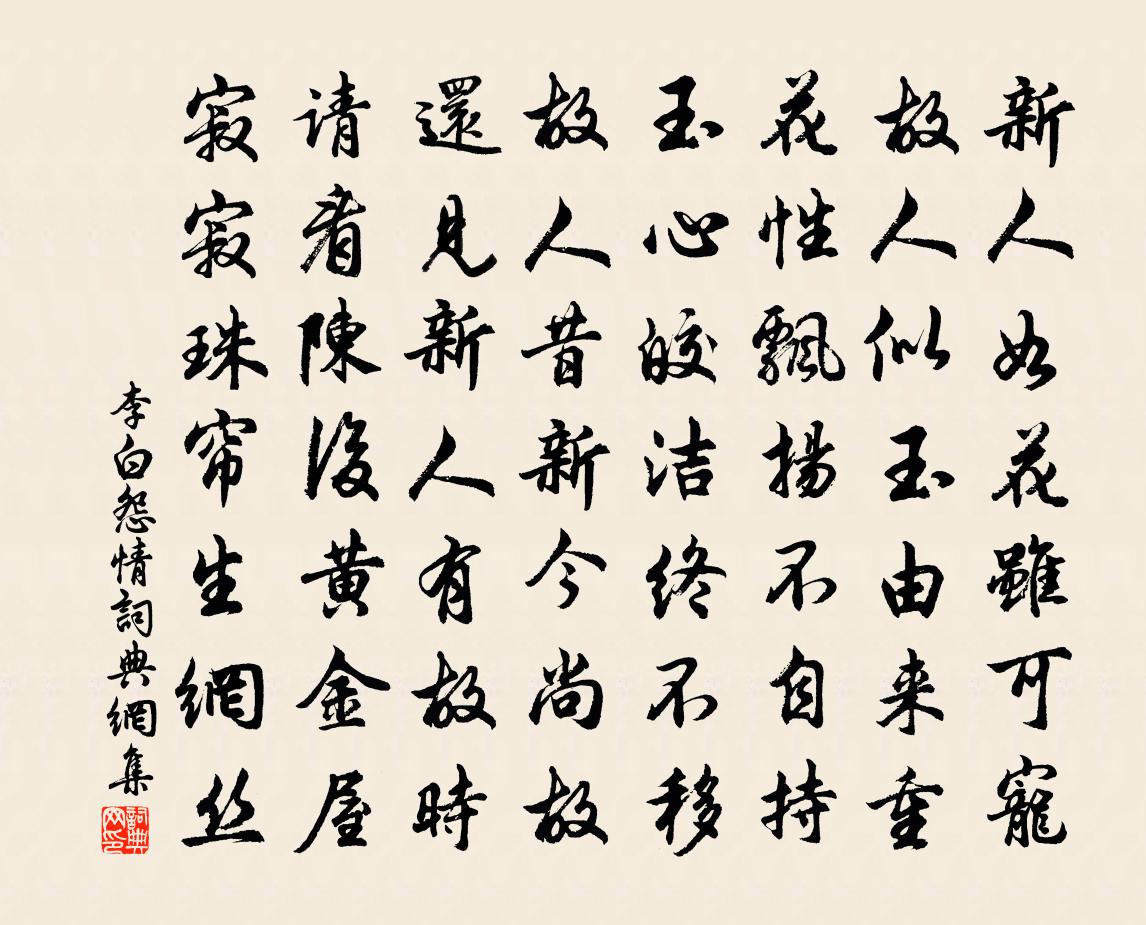 新人如花雖可寵
故人似玉由来重
花性飄揚不自持
玉心皎洁終不移
故人昔新今尚故
還見新人有故時
请看陳後黄金屋
寂寂珠帘生網丝
李白怨情詞典網集
詞典網印